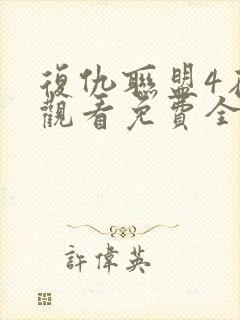 復仇聯盟4在
觀看免費全
許偉英